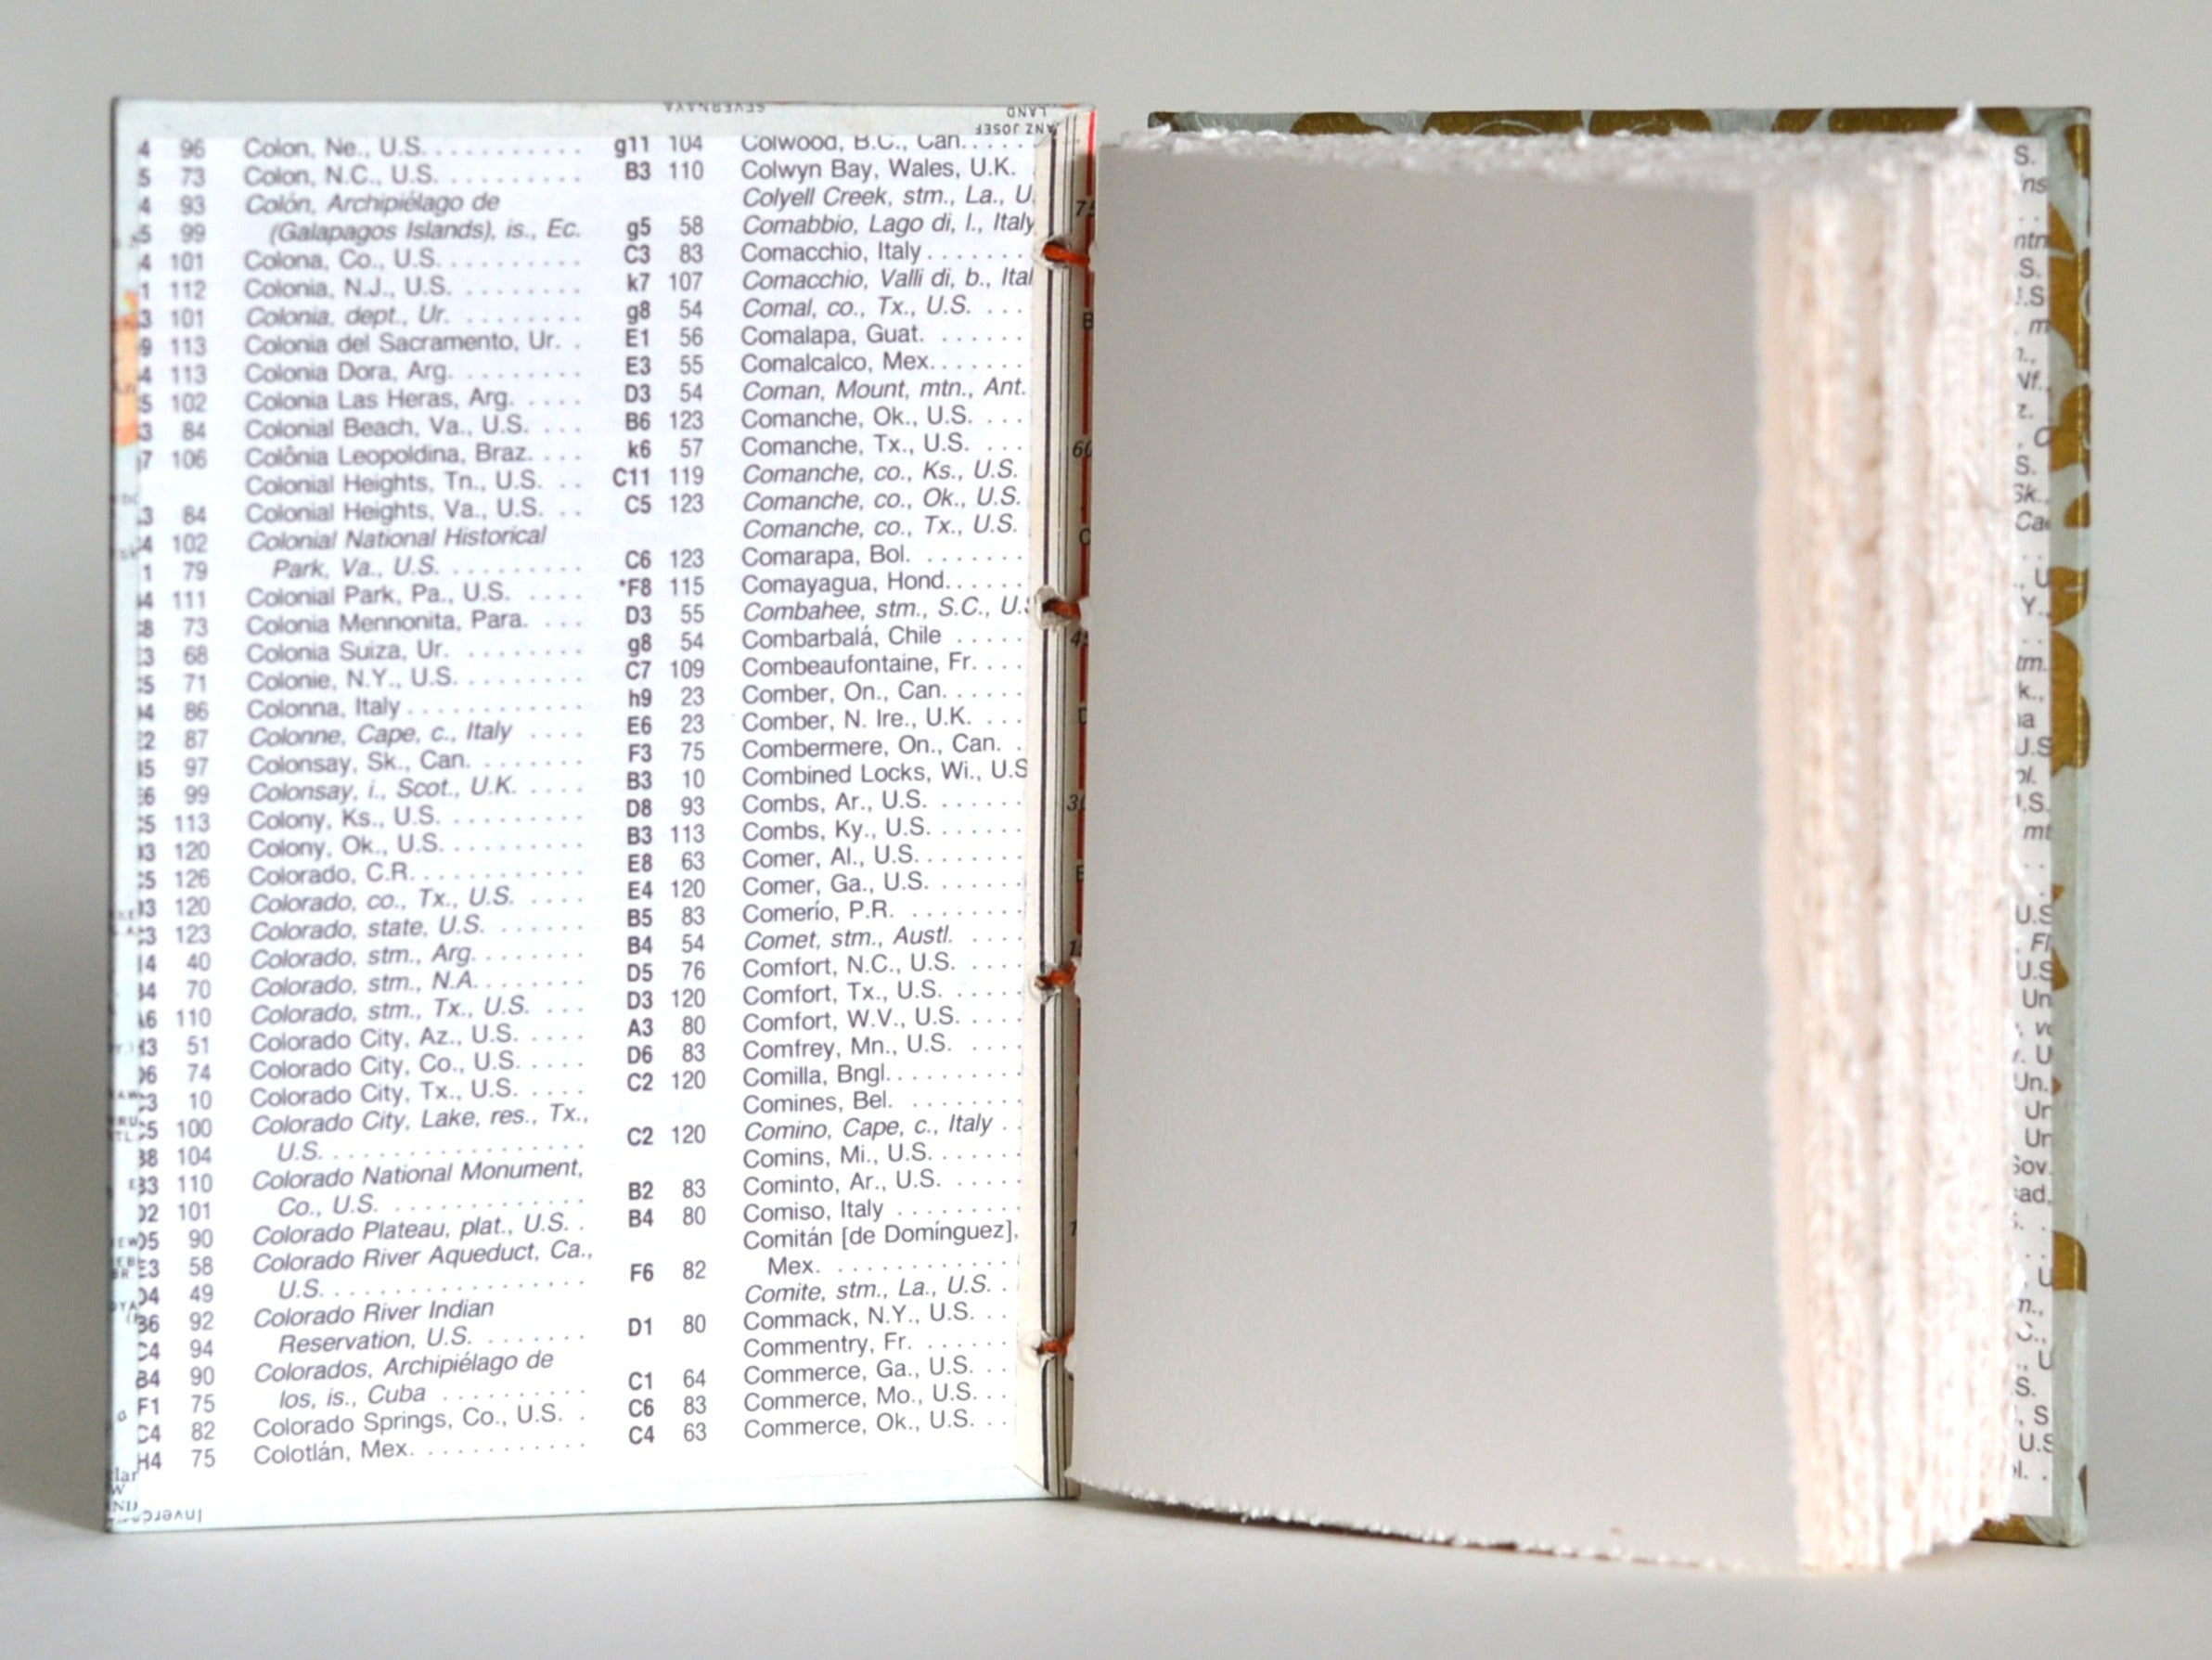 SEVERNAYA
LAND
ANZ JOSEF
4 96
5 73
4 93
5 99
4 101
1 112
3 101
9 113
4 113
5 102
3 84
7 106
3 84
4 102
1 79
4 111
8 73
3 68
5 71
4 86
2 87
5 97
6 99
5 113
3 120
5 126
3 120
3 123
4 40
4 70
6 110
3 51
6 74
3 10
5 100
8 104
3 110
2 101
5 90
E3 58
4 49
6 92
C4 94
B4 90
F1 75
C4 82
H4 75
Colon, Ne., U.S. . . . . . . . . . . g11 104
Colon, N.C., U.S. . . . . . . . . . . B3 110
Colón, Archipiélago de
(Galapagos Islands), is., Ec. g5 58
Colona, Co., U.S. . . . . . . . . . . C3 83
Colonia, N.J., U.S. . . . . . . . . . k7 107
Colonia, dept., Ur. . . . . . . . . . g8 54
Colonia del Sacramento, Ur. . . E1 56
Colonia Dora, Arg. . . . . . . . . . E3 55
Colonia Las Heras, Arg. . . . . D3 54
Colonial Beach, Va., U.S. . . . B6 123
Colônia Leopoldina, Braz. . . . k6 57
Colonial Heights, Tn., U.S. . . C11 119
Colonial Heights, Va., U.S. . . C5 123
Colonial National Historical
Park, Va., U.S. . . . . . . . . . . C6 123
Colonial Park, Pa., U.S. . . . . *F8 115
Colonia Mennonita, Para. . . . D3 55
Colonia Suiza, Ur. . . . . . . . . g8 54
Colonie, N.Y., U.S. . . . . . . . . C7 109
Colonna, Italy . . . . . . . . . . . . h9 23
Colonne, Cape, c., Italy . . . . E6 23
Colonsay, Sk., Can. . . . . . . . F3 75
Colonsay, i., Scot., U.K. . . . . B3 10
Colony, Ks., U.S. . . . . . . . . . D8 93
Colony, Ok., U.S. . . . . . . . . . B3 113
Colorado, C.R. . . . . . . . . . . . E8 63
Colorado, co., Tx., U.S. . . . . E4 120
Colorado, state, U.S. . . . . . . B5 83
Colorado, stm., Arg. . . . . . . . B4 54
Colorado, stm., N.A. . . . . . . . D5 76
Colorado, stm., Tx., U.S. . . . D3 120
Colorado City, Az., U.S. . . . . A3 80
Colorado City, Co., U.S. . . . . D6 83
Colorado City, Tx., U.S. . . . . C2 120
Colorado City, Lake, res., Tx.,
U.S. . . . . . . . . . . . . . . . . . . C2 120
Colorado National Monument,
Co., U.S. . . . . . . . . . . . . . . B2 83
Colorado Plateau, plat., U.S. . B4 80
Colorado River Aqueduct, Ca.,
U.S. . . . . . . . . . . . . . . . . . . F6 82
Colorado River Indian
Reservation, U.S. . . . . . . . D1 80
Colorados, Archipiélago de
los, is., Cuba . . . . . . . . . . . C1 64
Colorado Springs, Co., U.S. . C6 83
Colotlán, Mex. . . . . . . . . . . . C4 63
Colwood, B.C., Can. . . . .
Colwyn Bay, Wales, U.K.
Colyell Creek, stm., La., U.
Comabbio, Lago di, l., Italy
Comacchio, Italy . . . . . . .
Comacchio, Valli di, b., Ital
Comal, co., Tx., U.S. . . .
Comalapa, Guat. . . . . . .
Comalcalco, Mex. . . . . . .
Coman, Mount, mtn., Ant.
Comanche, Ok., U.S. . . .
Comanche, Tx., U.S. . . .
Comanche, co., Ks., U.S.
Comanche, co., Ok., U.S.
Comanche, co., Tx., U.S.
Comarapa, Bol. . . . . . . .
Comayagua, Hond. . . . . .
Combahee, stm., S.C., U.S
Combarbalá, Chile . . . . .
Combeaufontaine, Fr. . . .
Comber, On., Can. . . . . .
Comber, N. Ire., U.K. . . .
Combermere, On., Can. .
Combined Locks, Wi., U.S
Combs, Ar., U.S. . . . . . .
Combs, Ky., U.S. . . . . . .
Comer, Al., U.S. . . . . . . .
Comer, Ga., U.S. . . . . . .
Comerío, P.R. . . . . . . . .
Comet, stm., Austl. . . . .
Comfort, N.C., U.S. . . . .
Comfort, Tx., U.S. . . . . .
Comfort, W.V., U.S. . . . .
Comfrey, Mn., U.S. . . . .
Comilla, Bngl. . . . . . . . . .
Comines, Bel. . . . . . . . .
Comino, Cape, c., Italy . .
Comins, Mi., U.S. . . . . . .
Cominto, Ar., U.S. . . . . .
Comiso, Italy . . . . . . . . .
Comitán [de Domínguez],
Mex. . . . . . . . . . . . . . .
Comite, stm., La., U.S. . .
Commack, N.Y., U.S. . . .
Commentry, Fr. . . . . . . .
Commerce, Ga., U.S. . .
Commerce, Mo., U.S. . .
Commerce, Ok., U.S. . .